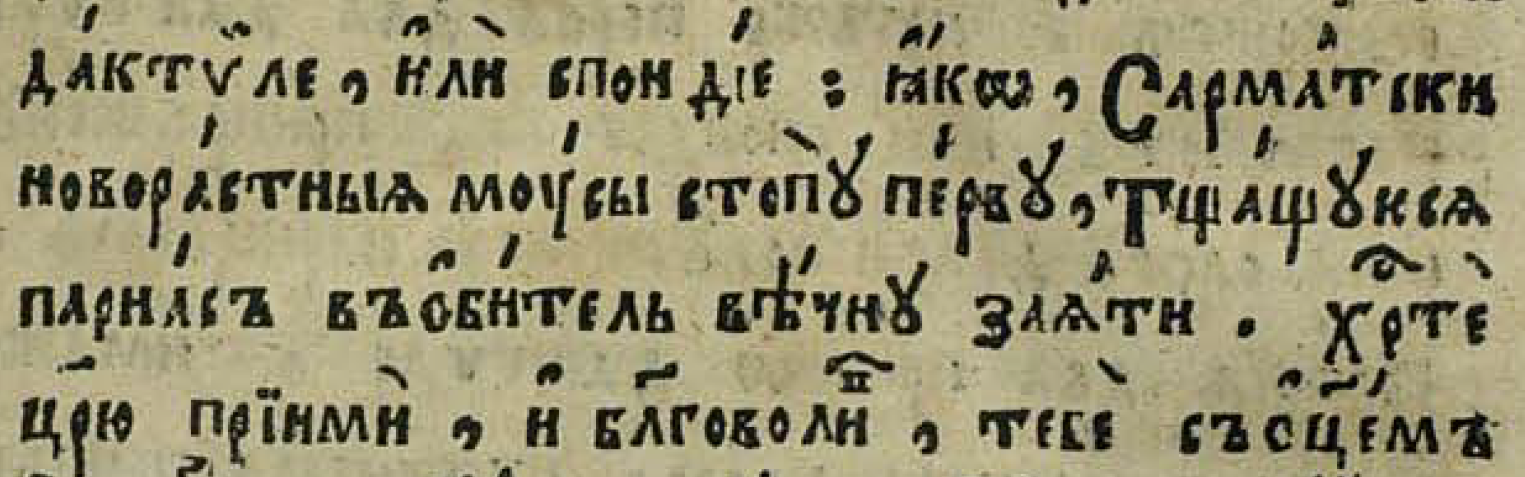 да́ктѷле , и҆лѝ спонді́е : ꙗ҆́кѡ , Сарма́тски
новора́стныѧ моу́сы стопꙋ̀ пе́рвꙋ́ , Тщꙗ́щꙋюсѧ
парна́съ въѻби́тель вѣ́чнꙋ заѧ́ти . Хрⷭ҇тѐ
цр҃ю прїимѝ , и҆ бл҃говолѝ , тебѐ съѻц҃е́мъ